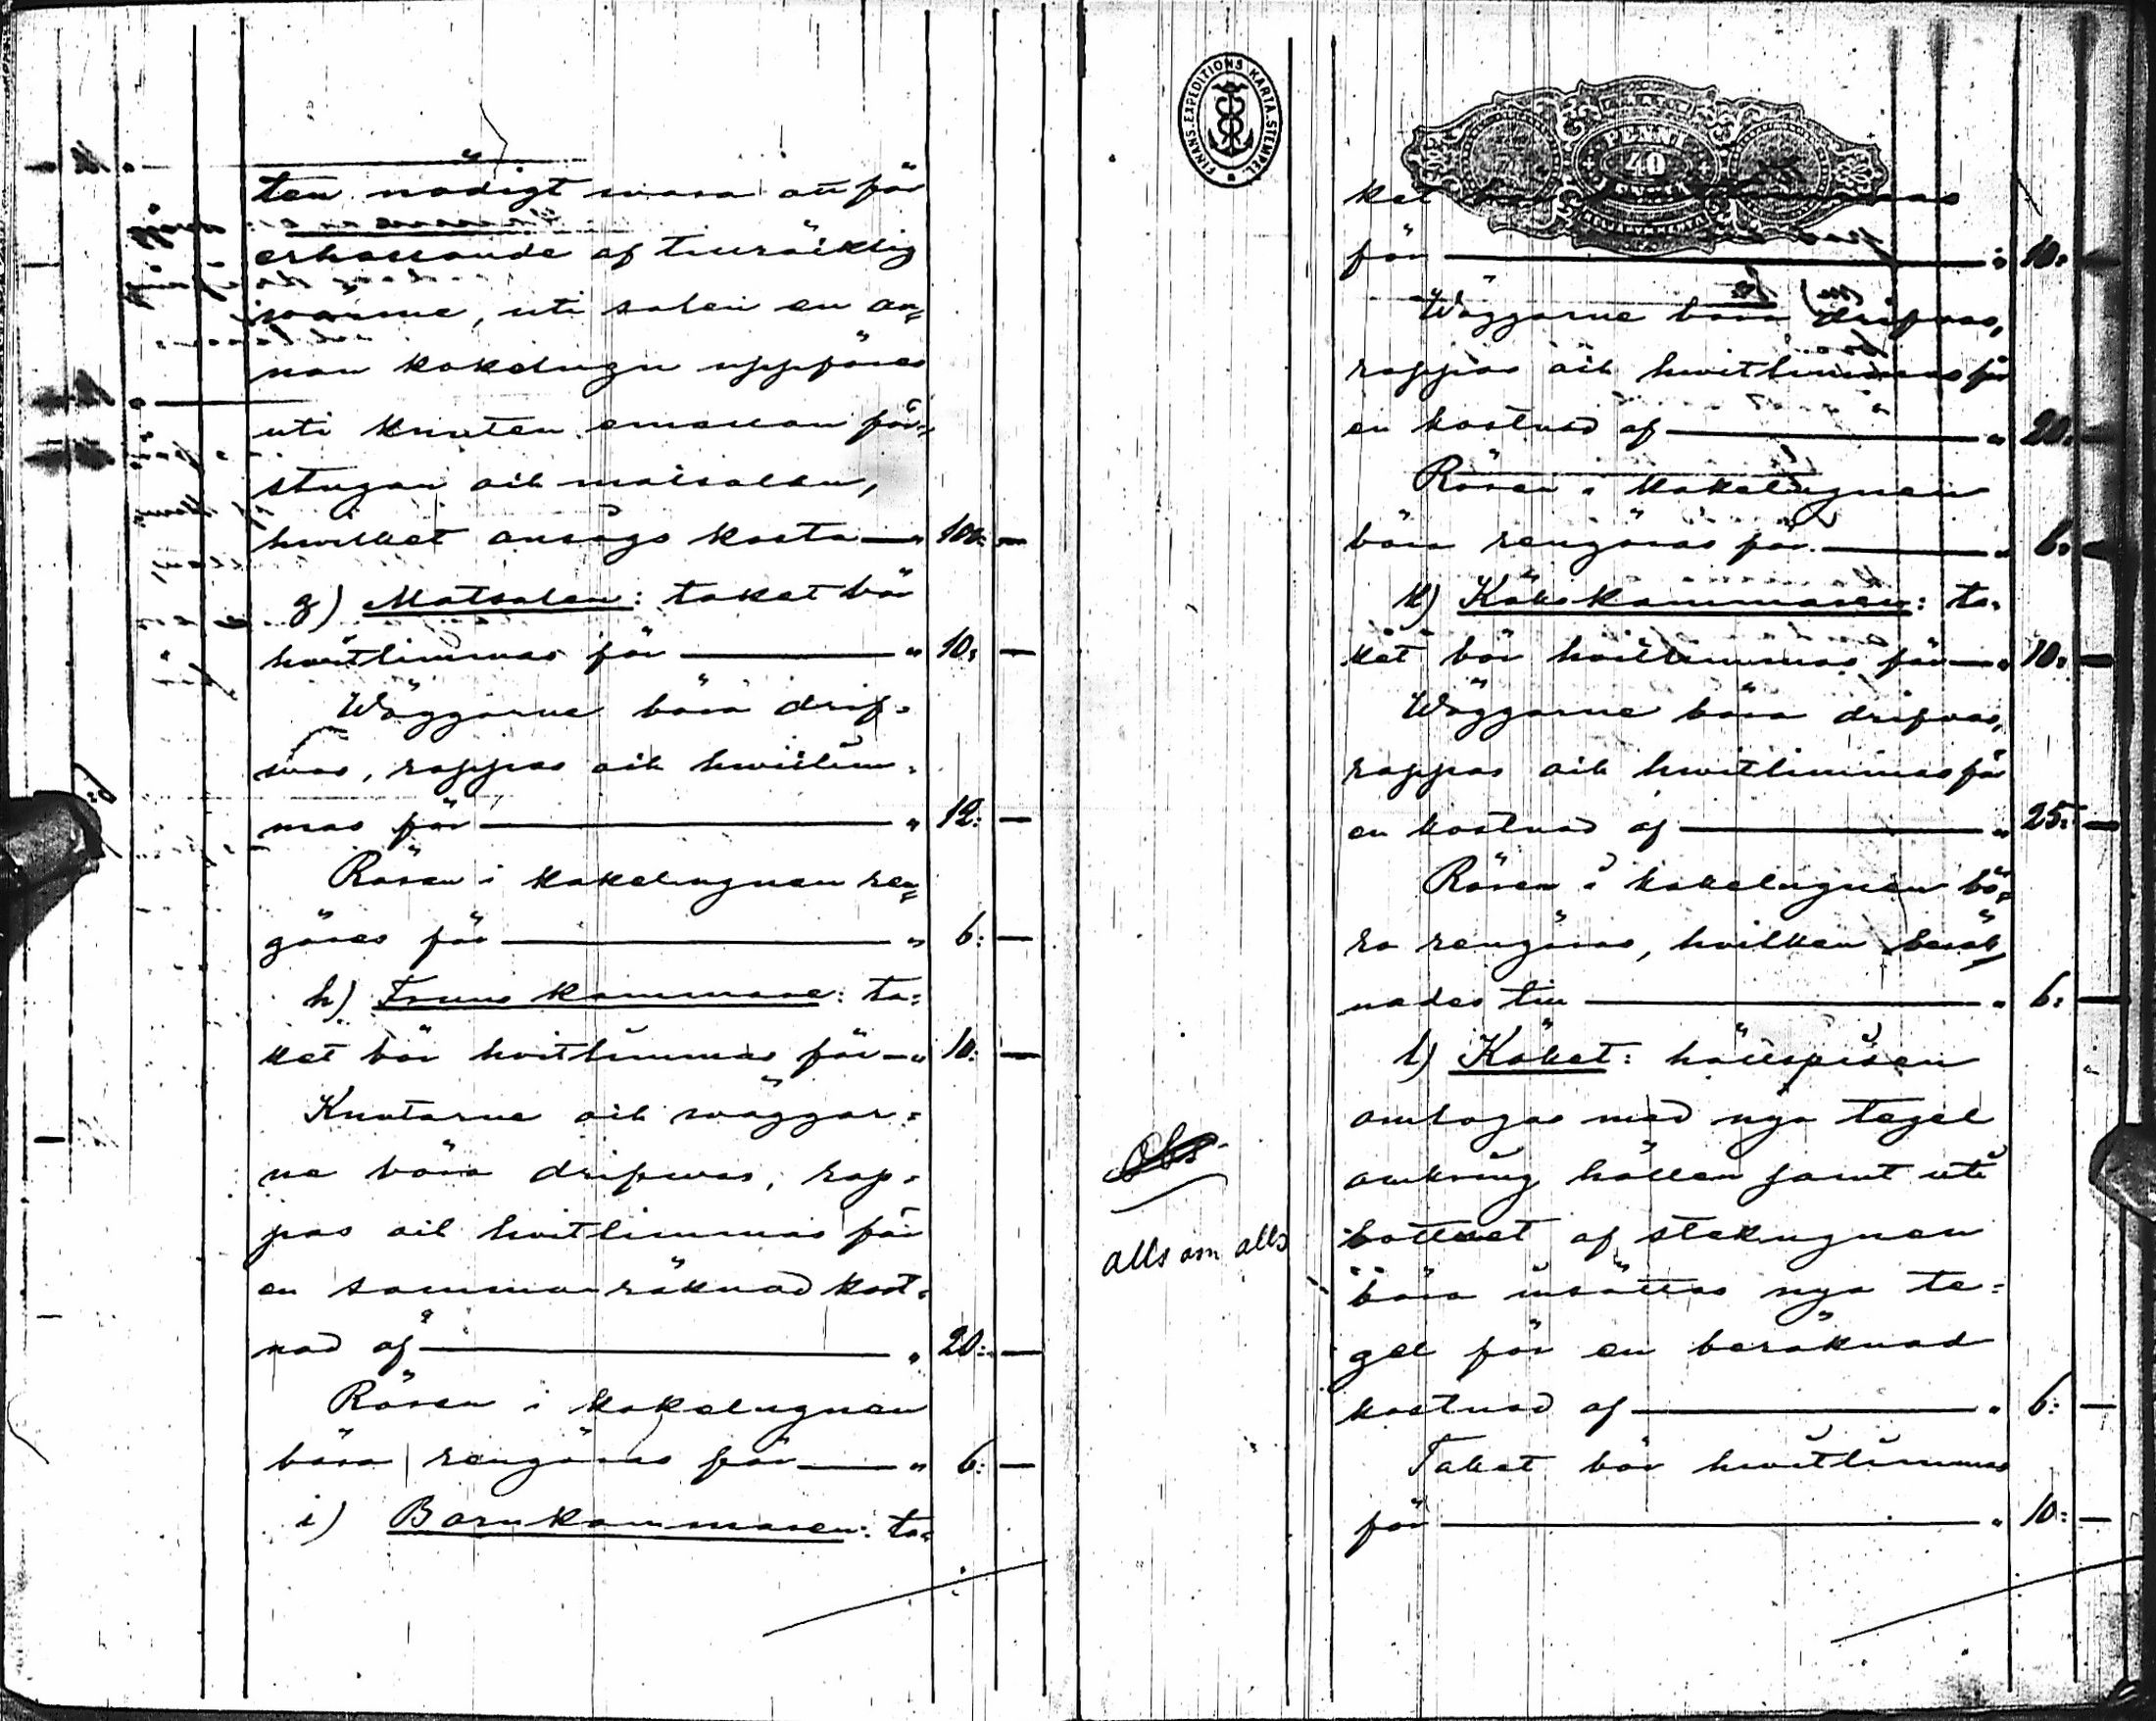 ten nödigt wara att för
erhållande af tillräcklig
wärme, uti salen en an=
nan kakelugn uppföres
uti knuten emellan för=
stugan och matsalen,
hwilket ansågs kosta — " 100: —
g) Matsalen: taket bör
hvitlimmas för — " 10: —
Wäggarne böra drif=
was, rappas och hwitlim=
mas för — " 12: —
Rören i kakelugnen ren=
göres för — " 6: —
h) Fruns kammare: ta=
ket bör hvitlimmas för — " 10: —
Knutarne och wäggar=
ne böra drifwas, rap=
pas och hvitlimmas för
en sammanräknad kost=
nad af — " 20: —
Rören i kakelugnen
böra rengöras för — " 6: —
i) Barnkammaren: ta=
FINANS.EXPEDITIONS KARTA.STEMPEL
PENNI
40
ket
för — " 10: —
Wäggarne böra drifvas,
rappas och hwitlimmas för
en kostnad af — " 20: —
Rören i kakelugnen
böra rengöras för — " 6: —
k) Kökskammaren: ta=
ket bör hvitlimmas för — " 10: —
Wäggarne böra drifvas,
rappas och hwitlimmas för
en kostnad af — " 25: —
Rören i kakelugnen bö=
ra rengöras, hvilken beräk=
nades till — " 6: —
l) Köket: hällspisen
omlagas med nya tegel
omkring hällen samt uti
bottnet af stekugnen
böra insättas nya te=
gel för en beräknad
kostnad af — " 6: —
Taket bör hwitlimmas
för — " 10: —
Obs
alls om alls